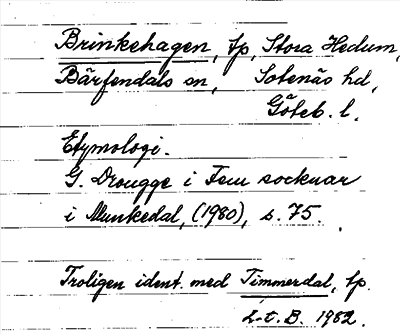 Brinkehagen, tp, Stora Hedum,
Bärfendals sn, Sotenäs hd,
Göteb. l.
Etymologi.
G. Drougge i Fem socknar
i Munkedal, (1980), s. 75.
Troligen ident. med Timmerdal, tp.
L-t. B. 1982.